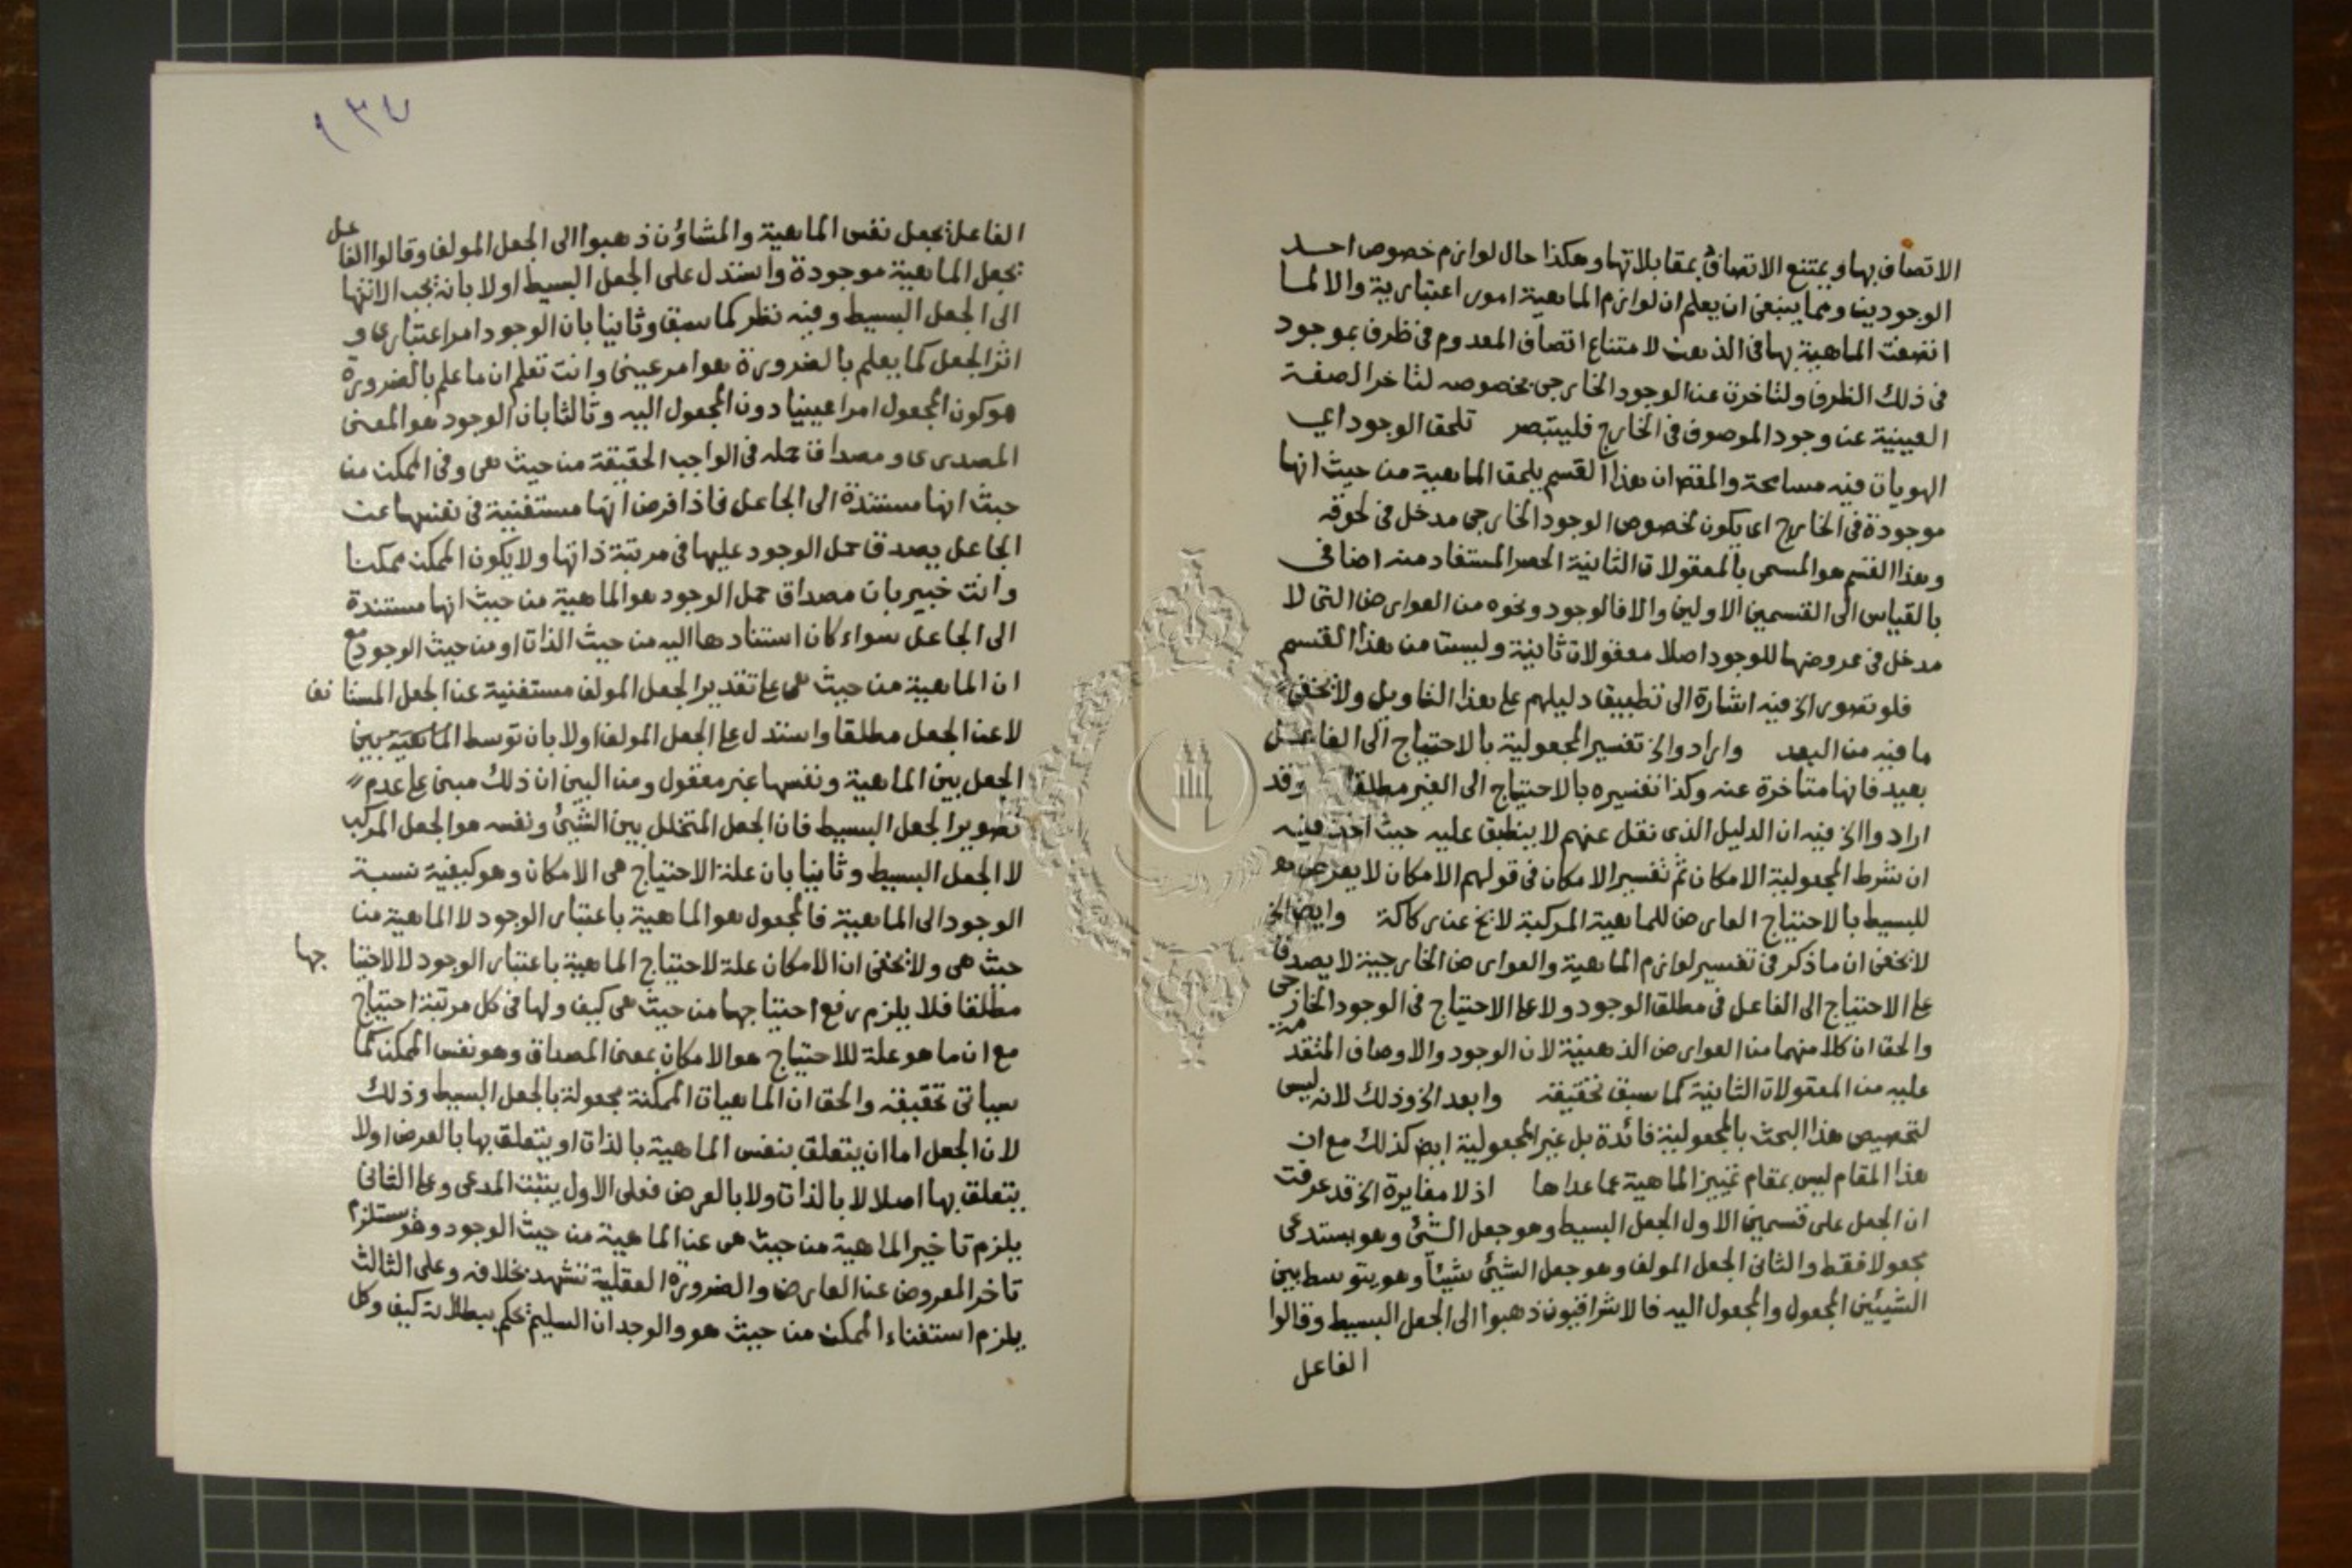 الاتصاف بها ويمتنع الاتصاف بمقابلاتها وهكذا حال لوازم خصوص احد
الوجودين ومما ينبغى ان يعلم ان لوازم الماهية امور اعتبارية والا لما
اتصفت الماهية بها فى الذهن لامتناع اتصاف المعدوم فى ظرف بموجود
فى ذلك الظرف ولتاخرت عن الوجود الخارجى بخصوصه لتاخر الصفة
العينية عن وجود الموصوف فى الخارج فليتبصر تلحق الوجود اي
الهويات فيه مسامحة والمقص ان هذا القسم يلحق الماهية من حيث انها
موجودة فى الخارج اى يكون لخصوص الوجود الخارجى مدخل فى لحوقه
وهذا القسم هو المسمى بالمعقولات الثانية الحصر المستفاد منه اضافى
بالقياس الى القسمين الاولين والا فالوجود ونحوه من العوارض التى لا
مدخل فى عروضها للوجود اصلا معقولات ثانية وليست من هذا القسم
فلو تصور الخ فيه اشارة الى تطبيق دليلهم على هذا التاويل ولا يخفى
ما فيه من البعد وارادوا الخ تفسير المجعولية بالاحتياج الى الفاعل
بعيد فانها متاخرة عنه وكذا تفسيره بالاحتياج الى الغير مطلقا وقد
ارادوا الخ فيه ان الدليل الذى نقل عنهم لا ينطبق عليه حيث اخذ فيه
ان شرط المجعولية الامكان ثم تفسير الامكان فى قولهم الامكان لا يعرض
للبسيط بالاحتياج العارض للماهية المركبة لا يخ عن ركاكة وايض الخ
لا يخفى ان ما ذكر فى تفسير لوازم الماهية والعوارض الخارجية لا يصدق
على الاحتياج الى الفاعل فى مطلق الوجود ولا على الاحتياج فى الوجود الخارجى
والحق ان كلا منهما من العوارض الذهنية لان الوجود والاوصاف المتقدمة
عليه من المعقولات الثانية كما سبق تحقيقه وابعد الخ وذلك لانه ليس
لتخصيص هذا البحث بالمجعولية فائدة بل غير المجعولية ايض كذلك مع ان
هذا المقام ليس بمقام تمييز الماهية عما عداها اذ لا مغايرة الخ قد عرفت
ان الجعل على قسمين الاول الجعل البسيط وهو جعل الشئ وهو يستدعى
مجعولا فقط والثانى الجعل المولف وهو جعل الشئ شيئاً وهو يتوسط بين
الشيئين المجعول والمجعول اليه فالاشراقيون ذهبوا الى الجعل البسيط وقالوا
الفاعل
١٣٧
الفاعل يجعل نفس الماهية والمشاؤن ذهبوا الى الجعل المولف وقالوا الفاعل
يجعل الماهية موجودة واستدل على الجعل البسيط اولا بانه يجب الانتها
الى الجعل البسيط وفيه نظر كما سبق وثانيا بان الوجود امر اعتبارى و
اثر الجعل كما يعلم بالضرورة هو امر عينى وانت تعلم ان ما علم بالضرورة
هو كون المجعول امرا عينيا دون المجعول اليه وثالثا بان الوجود هو المعنى
المصدرى ومصداق حمله فى الواجب الحقيقة من حيث هى وفى الممكن من
حيث انها مستندة الى الجاعل فاذا فرض انها مستغنية فى نفسها عن
الجاعل يصدق حمل الوجود عليها فى مرتبة ذاتها ولا يكون الممكن ممكنا
وانت خبير بان مصداق حمل الوجود هو الماهية من حيث انها مستندة
الى الجاعل سواء كان استنادها اليه من حيث الذات او من حيث الوجود مع
ان الماهية من حيث هى على تقدير الجعل المولف مستغنية عن الجعل المستانف
لا عن الجعل مطلقا واستدل على الجعل المولف اولا بان توسط الماهية بين
الجعل بين الماهية ونفسها غير معقول ومن البين ان ذلك مبنى على عدم
تصوير الجعل البسيط فان الجعل المتخلل بين الشئ ونفسه هو الجعل المركب
لا الجعل البسيط وثانيا بان علة الاحتياج هى الامكان وهو كيفية نسبة
الوجود الى الماهية فالمجعول هو الماهية باعتبار الوجود لا الماهية من
حيث هى ولا يخفى ان الامكان علة لاحتياج الماهية باعتبار الوجود لا لاحتياجها
مطلقا فلا يلزم رفع احتياجها من حيث هى كيف ولها فى كل مرتبة احتياج
مع ان ما هو علة للاحتياج هو الامكان بمعنى المصداق وهو نفس الممكن كما
سياتى تحقيقه والحق ان الماهيات الممكنة مجعولة بالجعل البسيط وذلك
لان الجعل اما ان يتعلق بنفس الماهية بالذات او يتعلق بها بالعرض او لا
يتعلق بها اصلا لا بالذات ولا بالعرض فعلى الاول يثبت المدعى وعلى الثانى
يلزم تاخير الماهية من حيث هى عن الماهية من حيث الوجود وهو يستلزم
تاخر المعروض عن العارض والضرورة العقلية تشهد بخلافه وعلى الثالث
يلزم استغناء الممكن من حيث هو والوجدان السليم يحكم ببطلانه كيف وكل